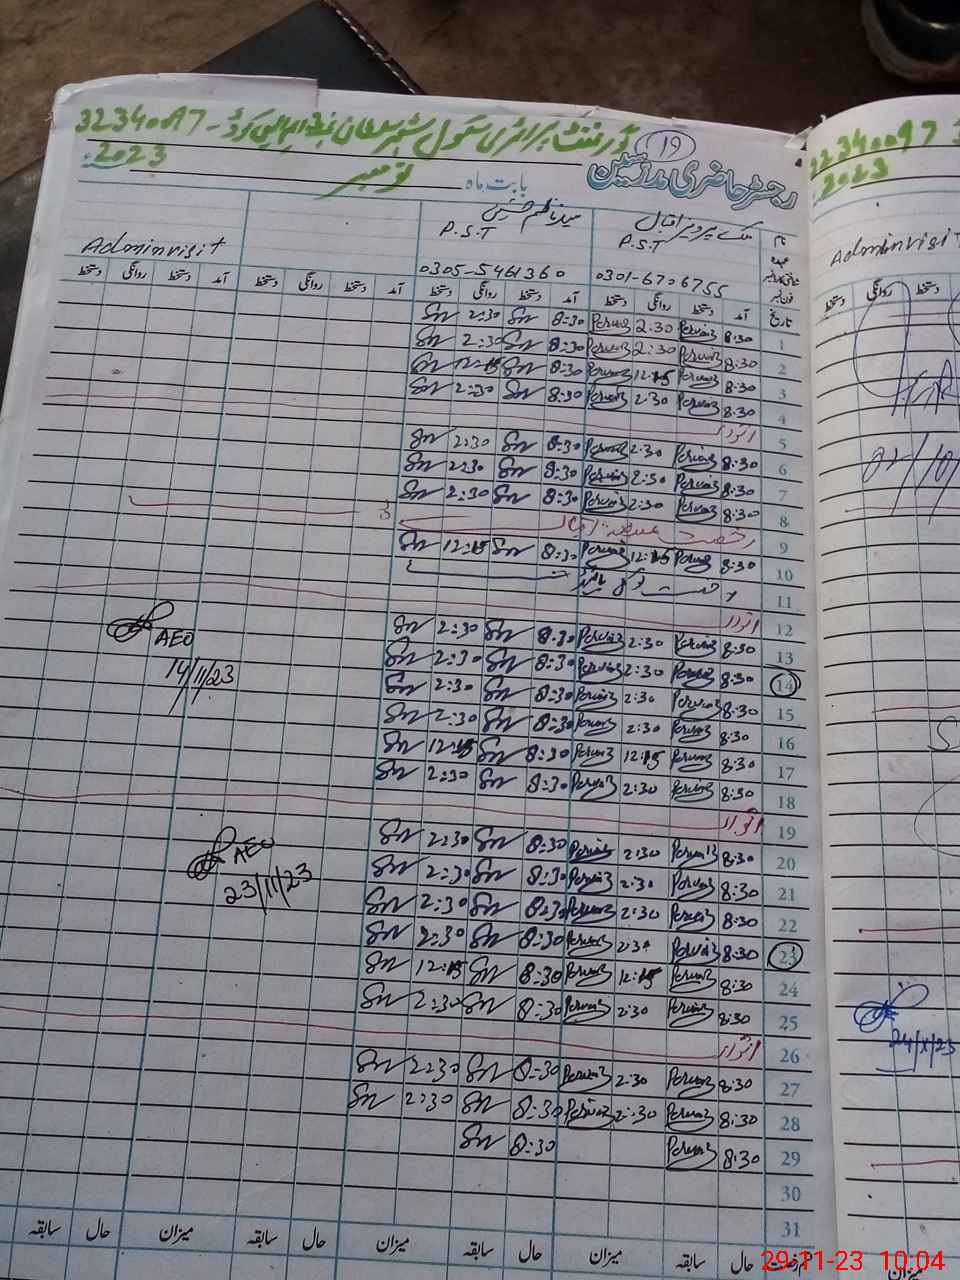 گورنمنٹ پرائمری سکول
32340097
19
2023ء
نومبر
بابت ماہ
رجسٹر حاضری مدرسین
ملک پرویز اقبال
P.S.T
P.S.T
Adminvisit
نام
عہدہ
0301-6706755
0305-5461360
تاریخ آمد دستخط روانگی دستخط آمد دستخط روانگی دستخط آمد دستخط روانگی دستخط آمد دستخط روانگی دستخط
1 8:30 Pervaiz 2:30 Pervaiz 8:30 Sn 2:30 Sn
2 8:30 Pervaiz 2:30 Pervaiz 8:30 Sn 2:30 Sn
3 8:30 Pervaiz 12:15 Pervaiz 8:30 Sn 12:15 Sn
4 8:30 Pervaiz 2:30 Pervaiz 8:30 Sn 2:30 Sn
5 اتوار
6 8:30 Pervaiz 2:30 Pervaiz 8:30 Sn 2:30 Sn
7 8:30 Pervaiz 2:30 Pervaiz 8:30 Sn 2:30 Sn
8 8:30 Pervaiz 2:30 Pervaiz 8:30 Sn 2:30 Sn
9 رخصت
10 8:30 Pervaiz 12:15 Pervaiz 8:30 Sn 12:15 Sn
11
12 اتوار
13 8:30 Pervaiz 2:30 Pervaiz 8:30 Sn 2:30 Sn
14 8:30 Pervaiz 2:30 Pervaiz 8:30 Sn 2:30 Sn AEO 14/11/23
15 8:30 Pervaiz 2:30 Pervaiz 8:30 Sn 2:30 Sn
16 8:30 Pervaiz 2:30 Pervaiz 8:30 Sn 2:30 Sn
17 8:30 Pervaiz 12:15 Pervaiz 8:30 Sn 12:15 Sn
18 8:30 Pervaiz 2:30 Pervaiz 8:30 Sn 2:30 Sn
19 اتوار
20 8:30 Pervaiz 2:30 Pervaiz 8:30 Sn 2:30 Sn
21 8:30 Pervaiz 2:30 Pervaiz 8:30 Sn 2:30 Sn
22 8:30 Pervaiz 2:30 Pervaiz 8:30 Sn 2:30 Sn
23 8:30 Pervaiz 2:30 Pervaiz 8:30 Sn 2:30 Sn AEO 23/11/23
24 8:30 Pervaiz 12:15 Pervaiz 8:30 Sn 12:15 Sn
25 8:30 Pervaiz 2:30 Pervaiz 8:30 Sn 2:30 Sn
26 اتوار
27 8:30 Pervaiz 2:30 Pervaiz 8:30 Sn 2:30 Sn
28 8:30 Pervaiz 2:30 Pervaiz 8:30 Sn 2:30 Sn
29 8:30 Pervaiz 8:30 Sn
30
31
حال سابقہ میزان حال سابقہ میزان حال سابقہ میزان حال سابقہ
32340097
2023
Adminvisit
دستخط روانگی دستخط
24/X/23
میزان
29-11-23 10:04